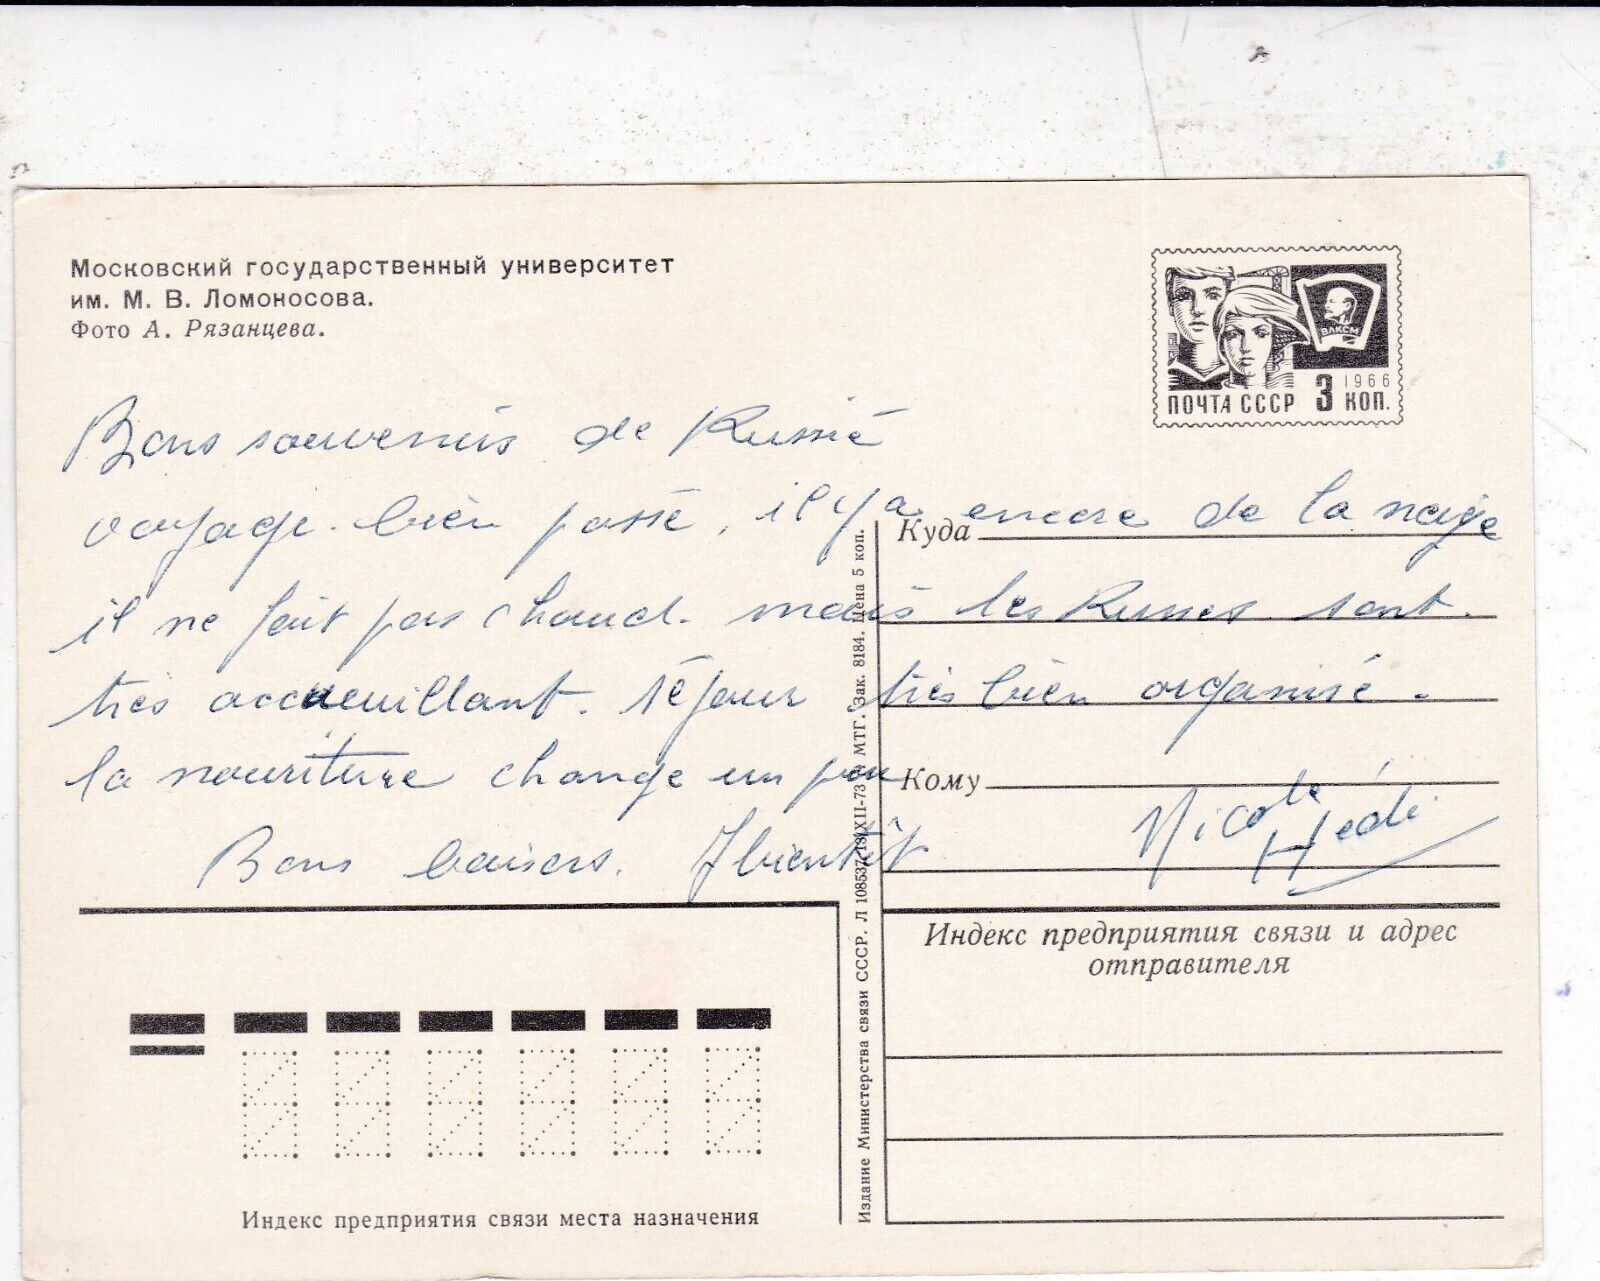 Московский государственный университет
им. М. В. Ломоносова.
Фото А. Рязанцева.
ВЛКСМ
1966
ПОЧТА СССР 3 КОП.
Bons souvenirs de Russie
voyage bien passé, il y a encore de la neige
il ne fait pas chaud. mais les Russes sont
très accueuillant. séjour très bien organisé.
la nouriture change un peu
Bons baisers. A bientôt
Nicole Hédi
Куда
Кому
Индекс предприятия связи и адрес
отправителя
Издание Министерства связи СССР. Л 108537 13/XII-73 МТГ. Зак. 8184. Цена 5 коп.
Индекс предприятия связи места назначения